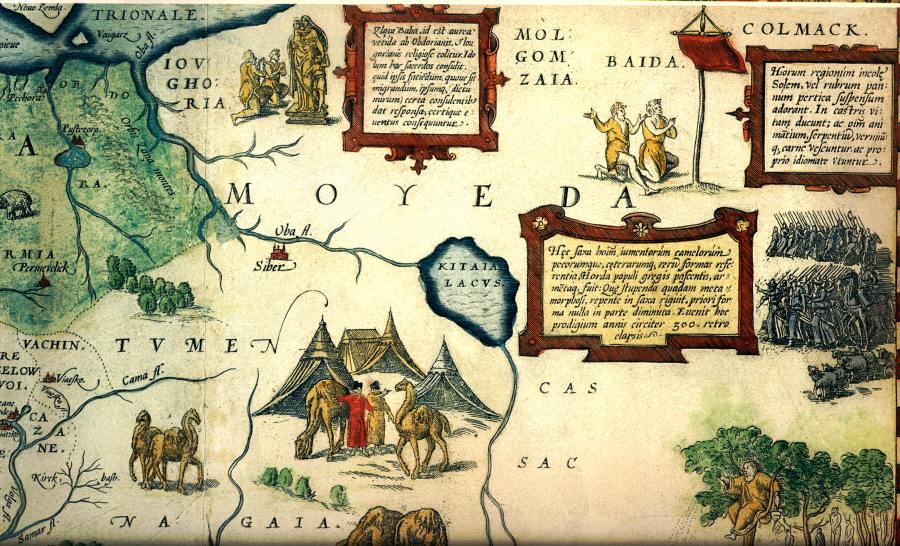 Nouo Zemla
TRIONALE.
Vaigatz
Oba fl.
Pechora
OB
DO
RA.
Pustezora
A
RMIA
Permevelick
IOV
GHO
RIA
Zlata Baba, id est aurea
vetula ab Obdorianis, & Iou
gorianis religiose colitur. Ido
lum hoc sacerdos consulit,
quid ipsis faciēdum, quoue sit
migrandum, ipsumq́; (dictu
mirum) certa consulentib9
dat responsa, certique e
uentus consequuntur.
MOL
GOM
ZAIA
BAIDA.
COLMACK.
Horum regionum incole
Solem, vel rubrum pan:
num pertica suspensum
adorant. In castris vi:
tam ducunt; ac oīm ani
mātium, serpentiū, vermiū
q́; carne vescuntur. ac pro:
prio idiomate vtuntur.
MOYEDA
Oba fl.
Siber
KITAIA
LACVS.
Hęc saxa hoīm iumentorum camelorum
pecorumque, cęterarumq́; rerū formas refe:
rentia, Horda populi gregis pascentis, ar:
mētaq́; fuit: Que stupenda quadam meta:
morphosi, repente in saxa riguit, priori for
ma nulla in parte diminuta. Euenit hoc
prodigium annis circiter 300. retro
elapsis.
VACHIN.
TVMEN
RE
ELOW
VOI.
Viatko.
Cama fl.
CA
ZA
NE.
CAS
SAC
Kirck,
bash.
Samar fl.
NAGAIA.